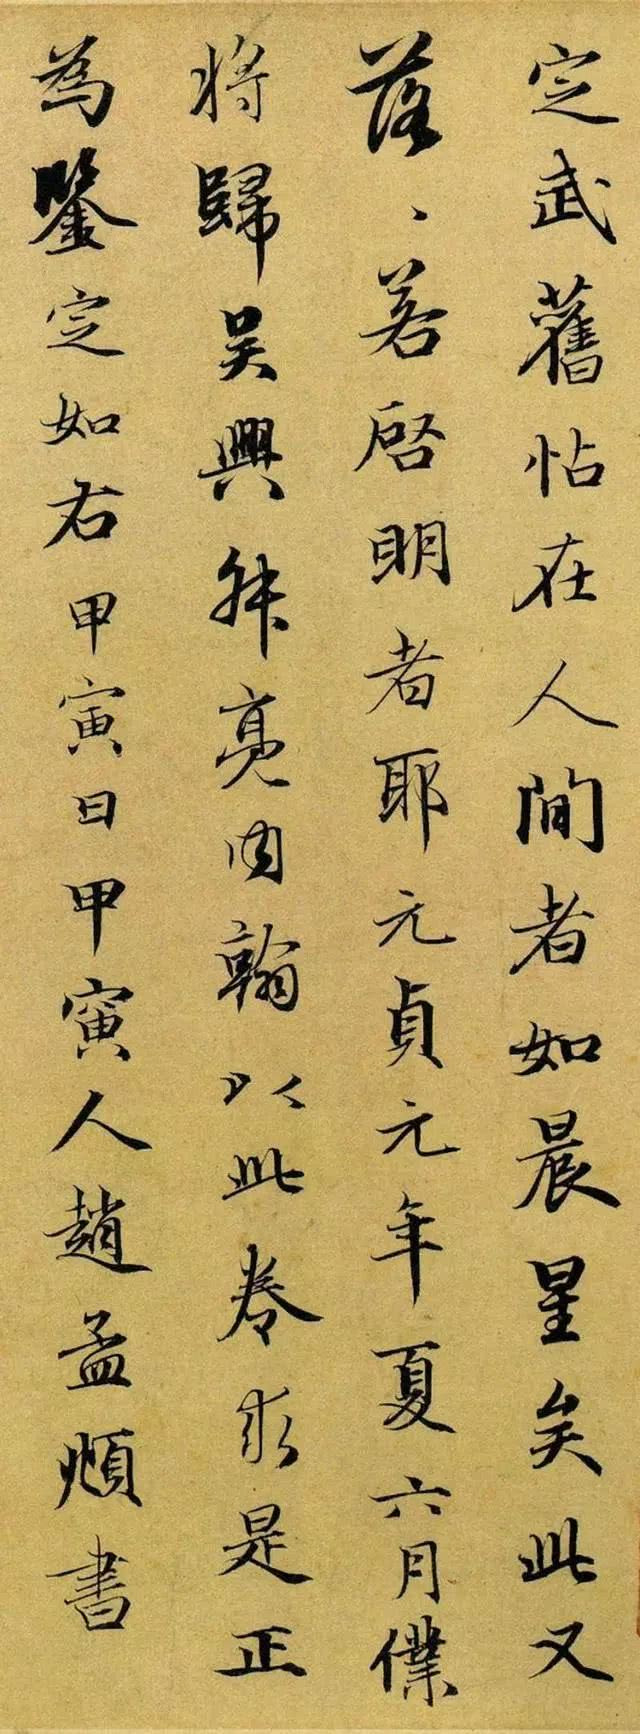 定武舊帖在人間者如晨星矣此又
落、若啓明者耶元貞元年夏六月僕
将歸吳興叔亮内翰以此卷求是正
為鑒定如右甲寅日甲寅人趙孟頫書